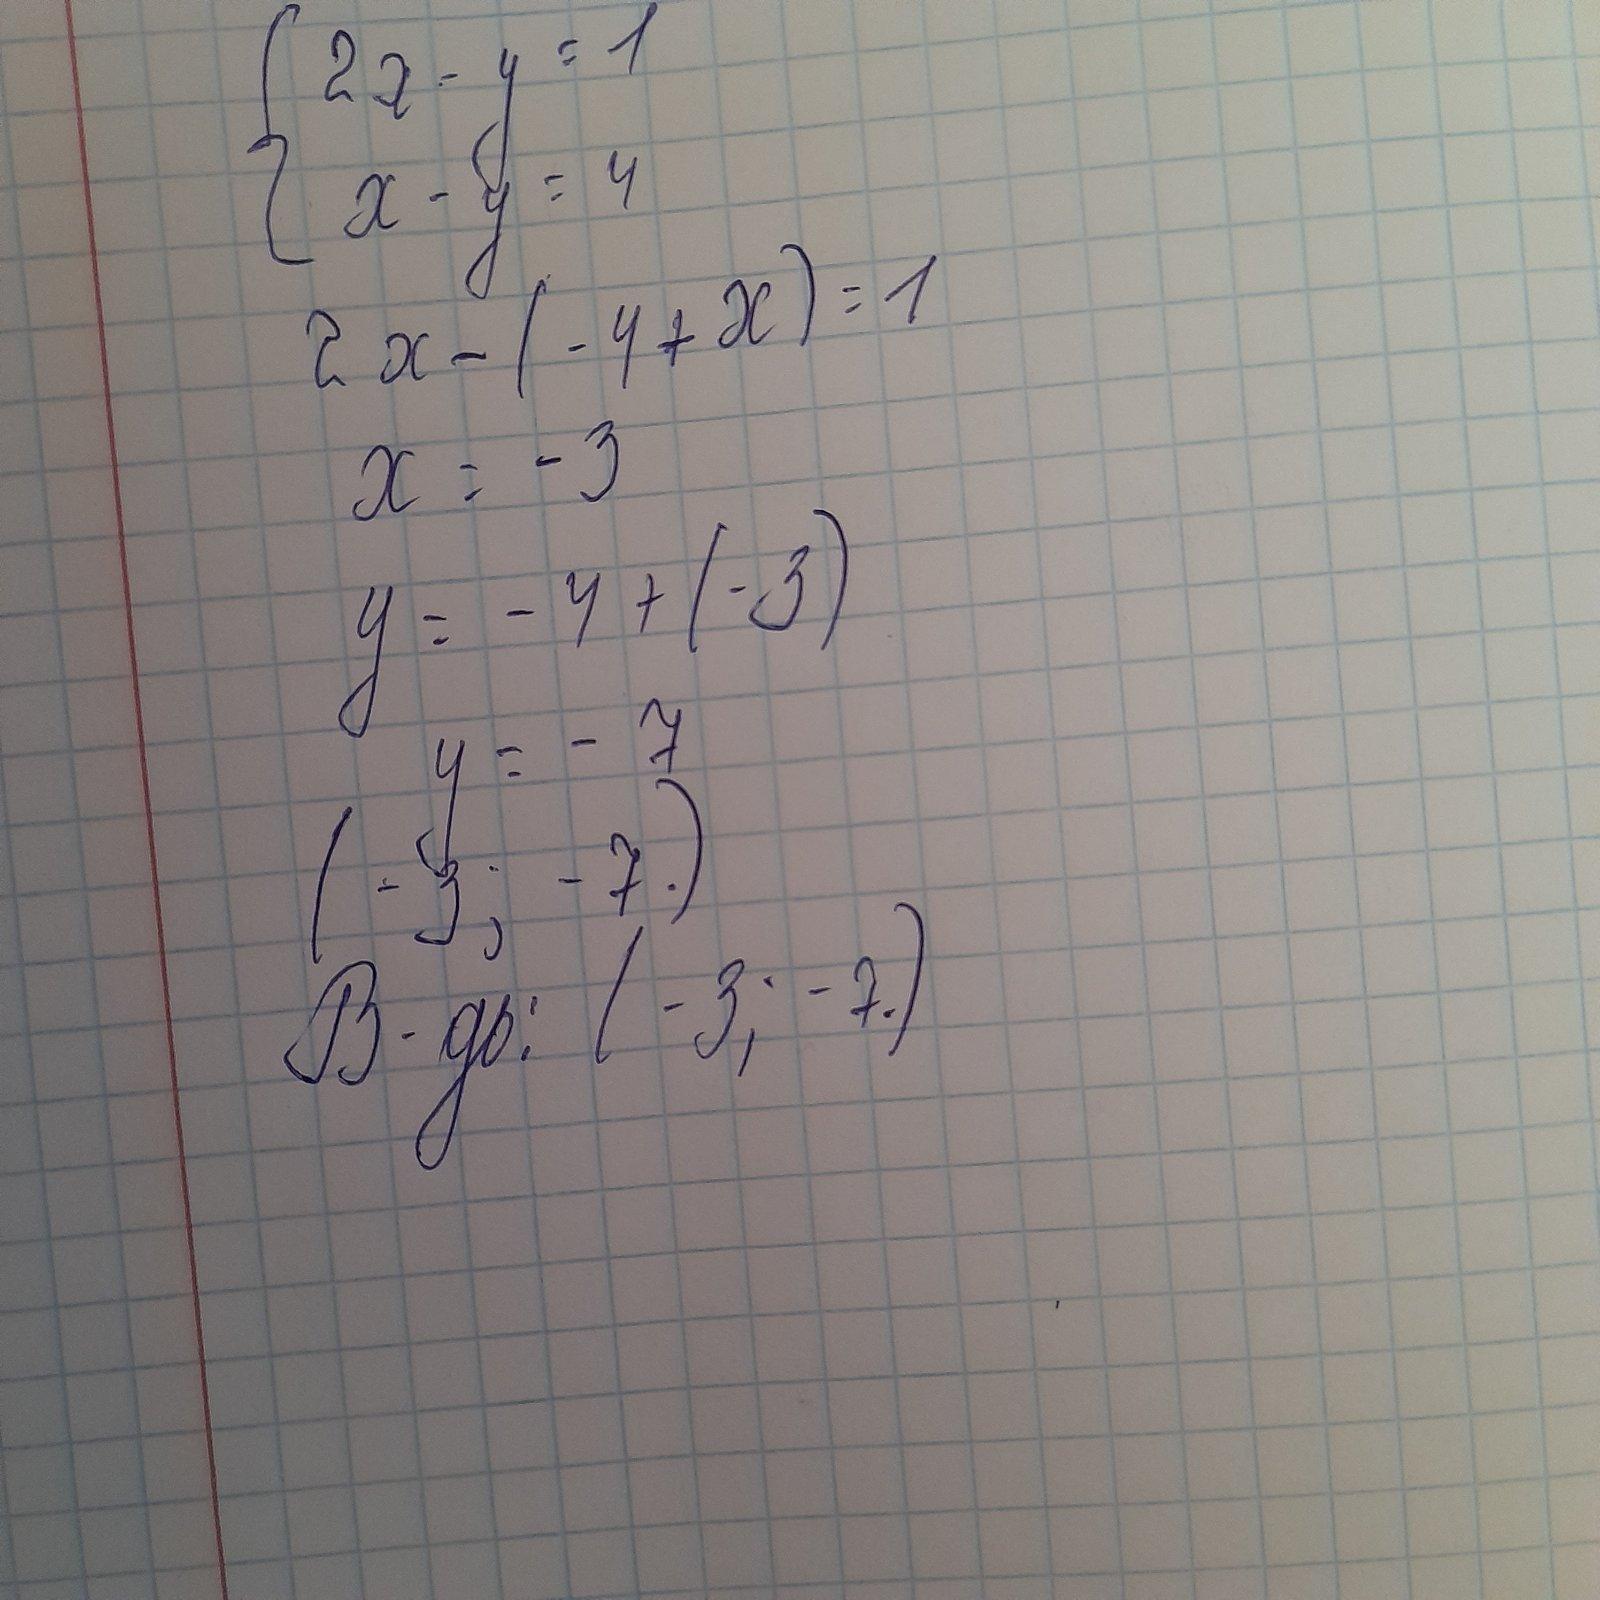 { 2x - y = 1
x - y = 4
2x - (-4 + x) = 1
x = -3
y = -4 + (-3)
y = -7
(-3; -7.)
В-дь: (-3; -7.)